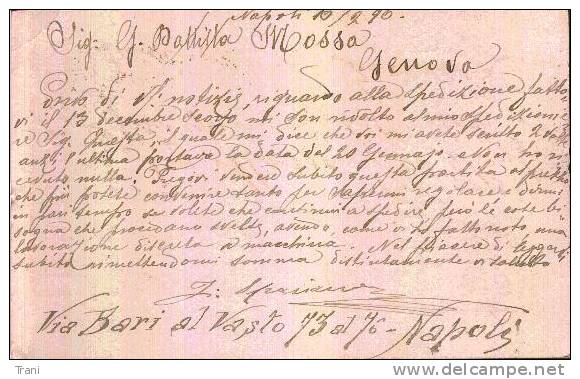 Napoli 10/2 90.
Sig. G. Battista Mossa
Genova
Privo di V. notizie, riguardo alla spedizione fatto-
vi il 13 decembre scorso mi son rivolto al mio spedizionie
re Sig. Questa, il quale mi dice che voi mi avete scritto 2
l'ultima portava la data del 20 Gennajo. Non ho ri
cevuto nulla. subito questa partita a prezzo
che più potete convenire tanto per Sapermi regolare e
in fari sempre se volete che continui a spedire, però le cose bi
sogna che procedano svelte, avendo, come vi ho fatto noto, una
lavorazione discreta a macchina. Nel piacere di leggervi
subito rimettendomi somma distintamente vi saluto
Via Bari al Vasto 73 al 76 - Napoli
Trani
www.delcampe.net